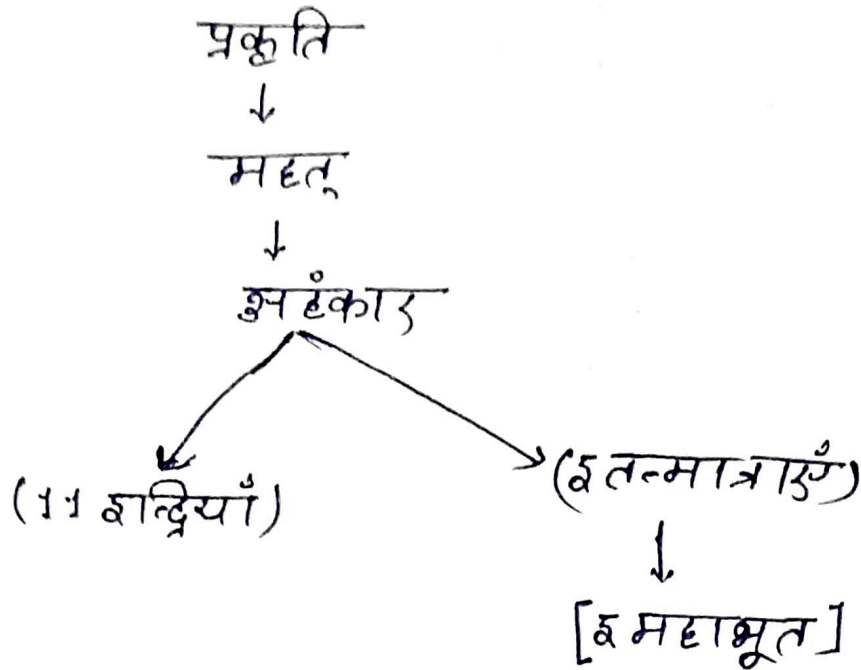 प्रकृति
↓
महत्
↓
अहंकार
(11 इन्द्रियाँ) (5 तन्मात्राएँ)
↓
[5 महाभूत]